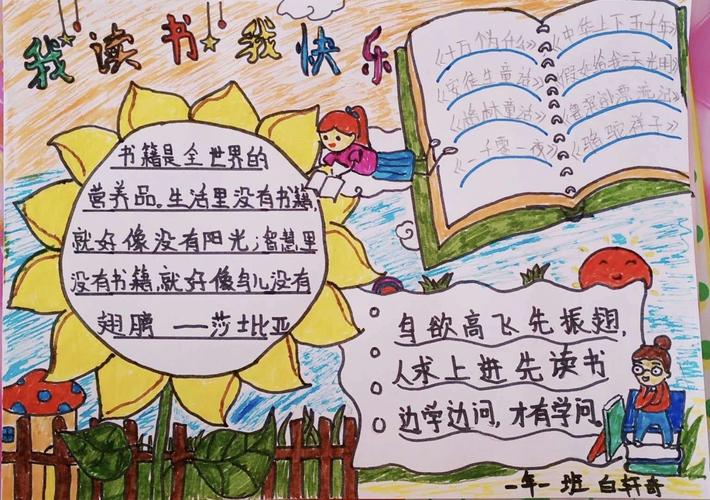 我读书我快乐
书籍是全世界的
营养品。生活里没有书籍,
就好像没有阳光;智慧里
没有书籍,就好像鸟儿没有
翅膀 ——莎士比亚
《十万个为什么》
《安徒生童话》
《格林童话》
《一千零一夜》
《中华上下五千年》
《假如给我三天光明》
《鲁滨孙漂流记》
《骆驼祥子》
鸟欲高飞先振翅,
人求上进先读书
边学边问,才有学问。
一年一班 白轩奇